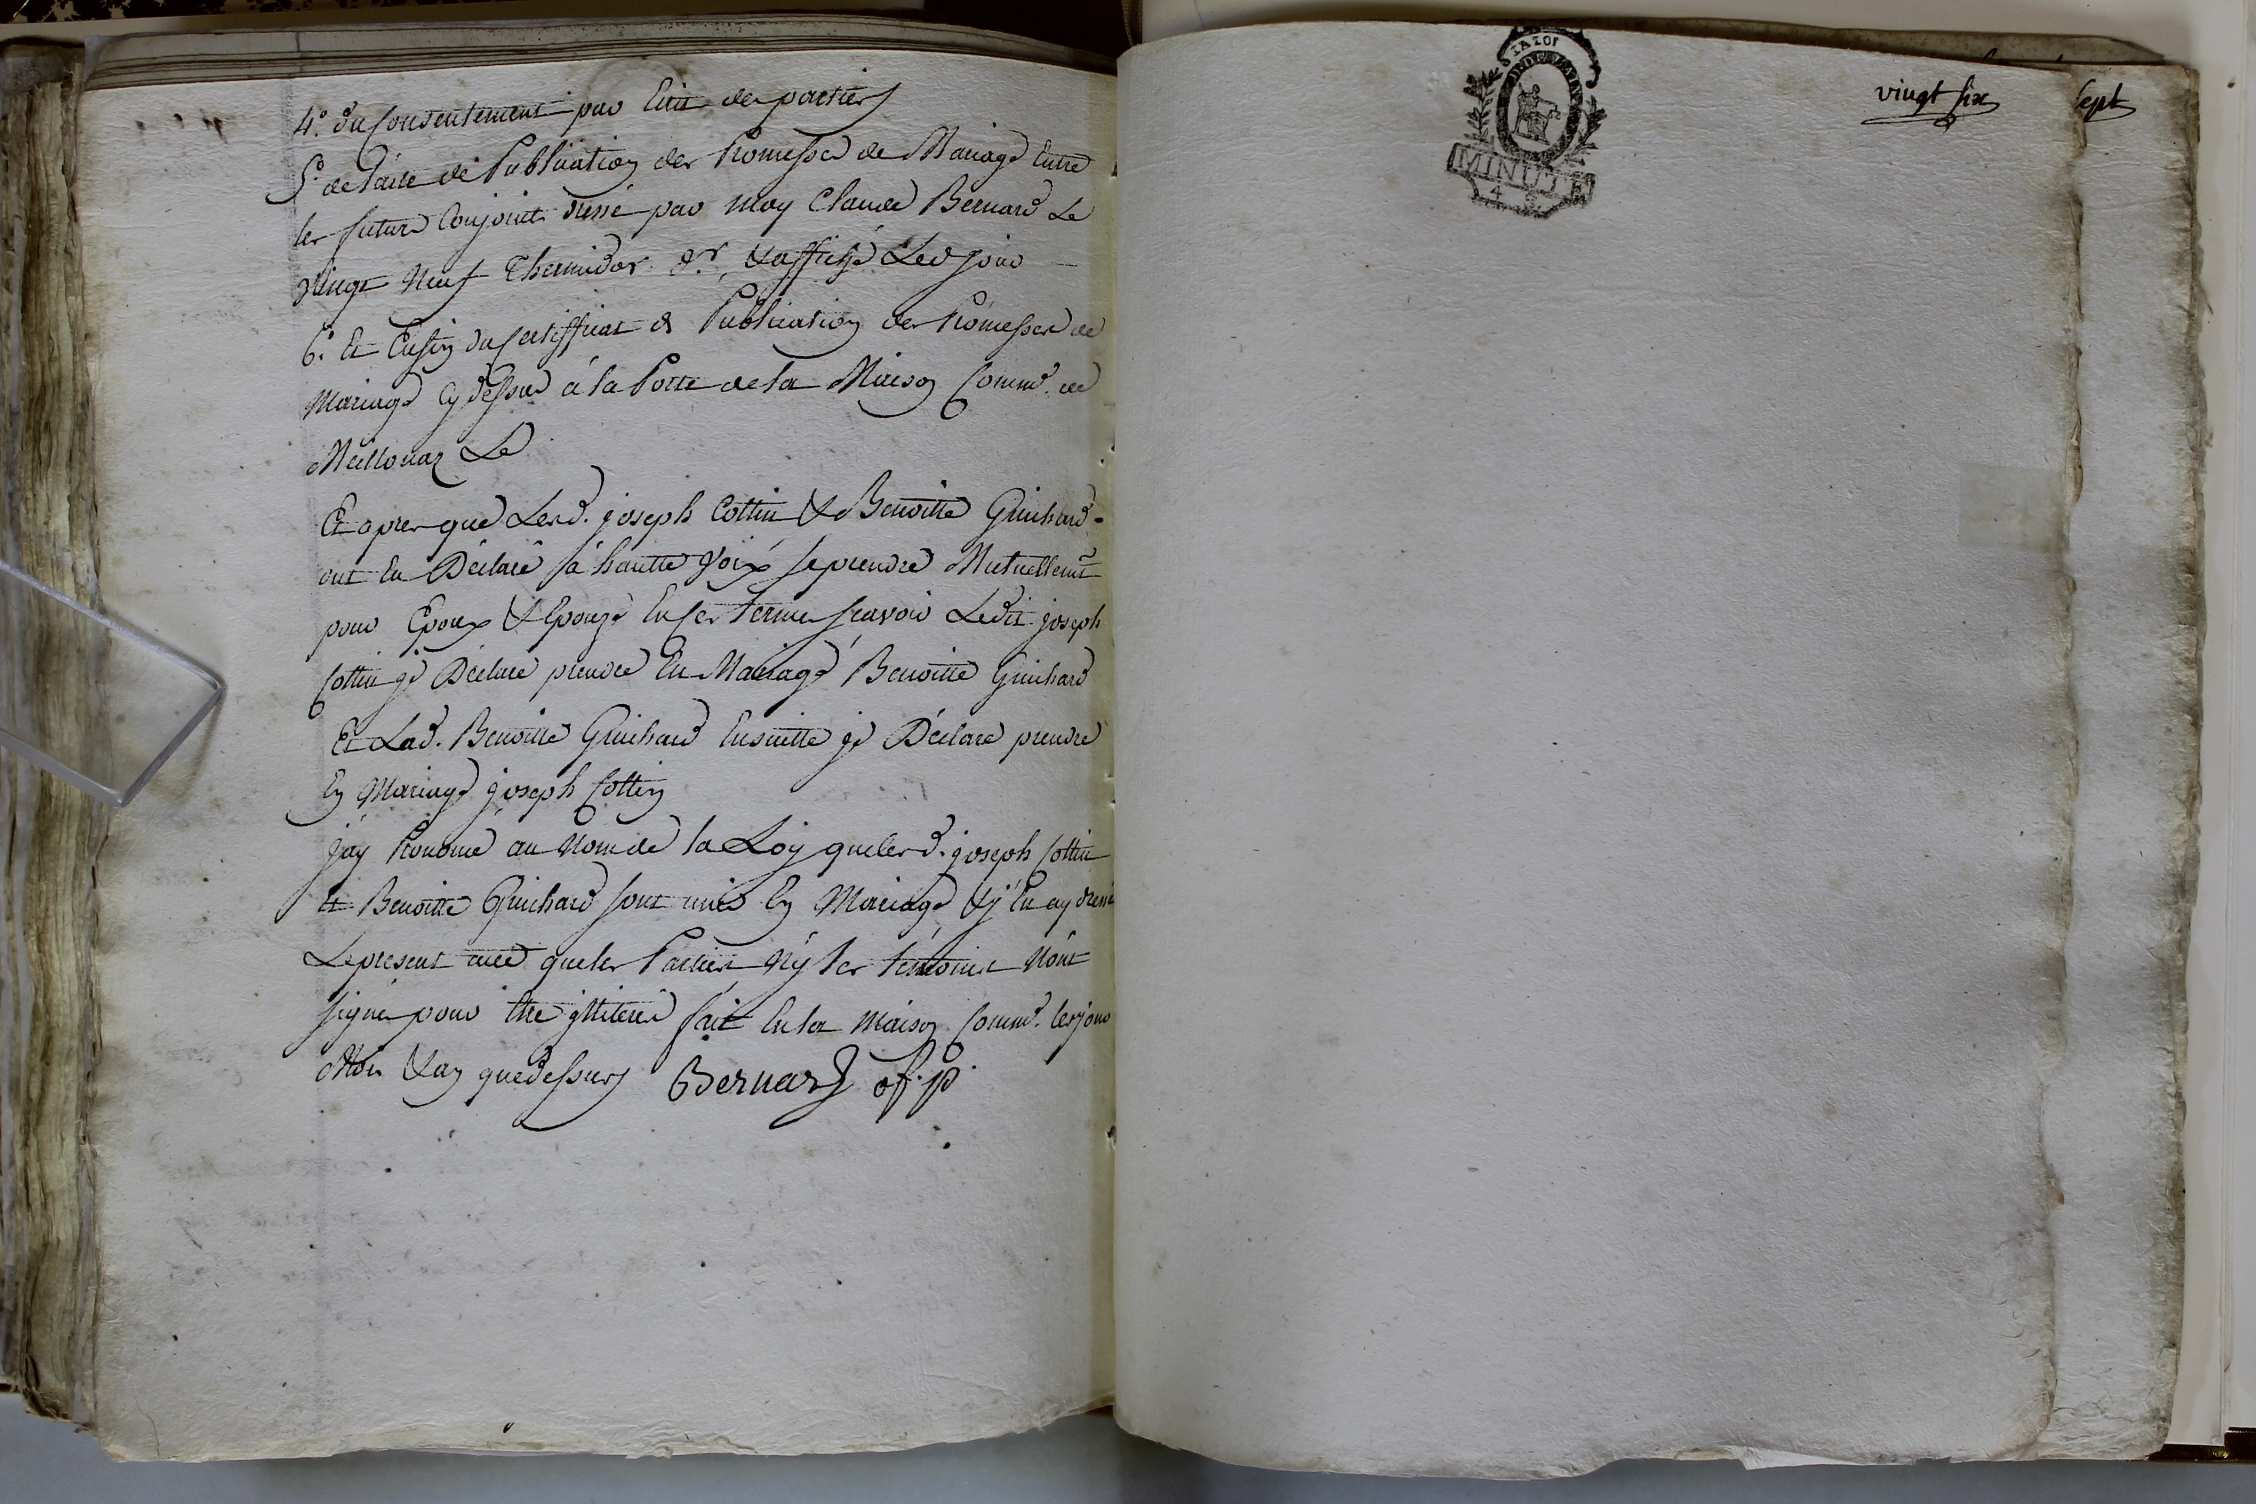 4.° du Consentement par Ecrit des parties
5.° de l'acte de Publication des Promesses de Mariage Entre
les futurs Conjoints dressé par moy Claude Bernard Le
vingt Neuf Thermidor d.r & affiché Led jour
6.° Et Enfin du Certifficat de Publication des Promesses de
Mariage Cy dessus à la Porte de la Maison Comm.e de
Meillonaz Le
Et apres que Lesd. joseph Cottin & Benoitte Guichard
ont Eu Déclaré à hautte Voix se prendre Mutuellemt
pour Epoux & Epouze En ces termes scavoir Ledit joseph
Cottin je Déclare prendre En Mariage Benoitte Guichard
Et Lad. Benoitte Guichard Ensuitte je Déclare prendre
En Mariage joseph Cottin
j'ay Prononcé au Nom de la Loy que lesd. joseph Cottin
Et Benoitte Guichard sont unis En Mariage & j'En ay dressé
Le present acte que les Parties N'y les témoins N'ont
signé pour Etre illiterés fait En la Maison Comm.e les jour
Mois & an que dessus Bernard of. p.
MINUTE
4
vingt six
sept